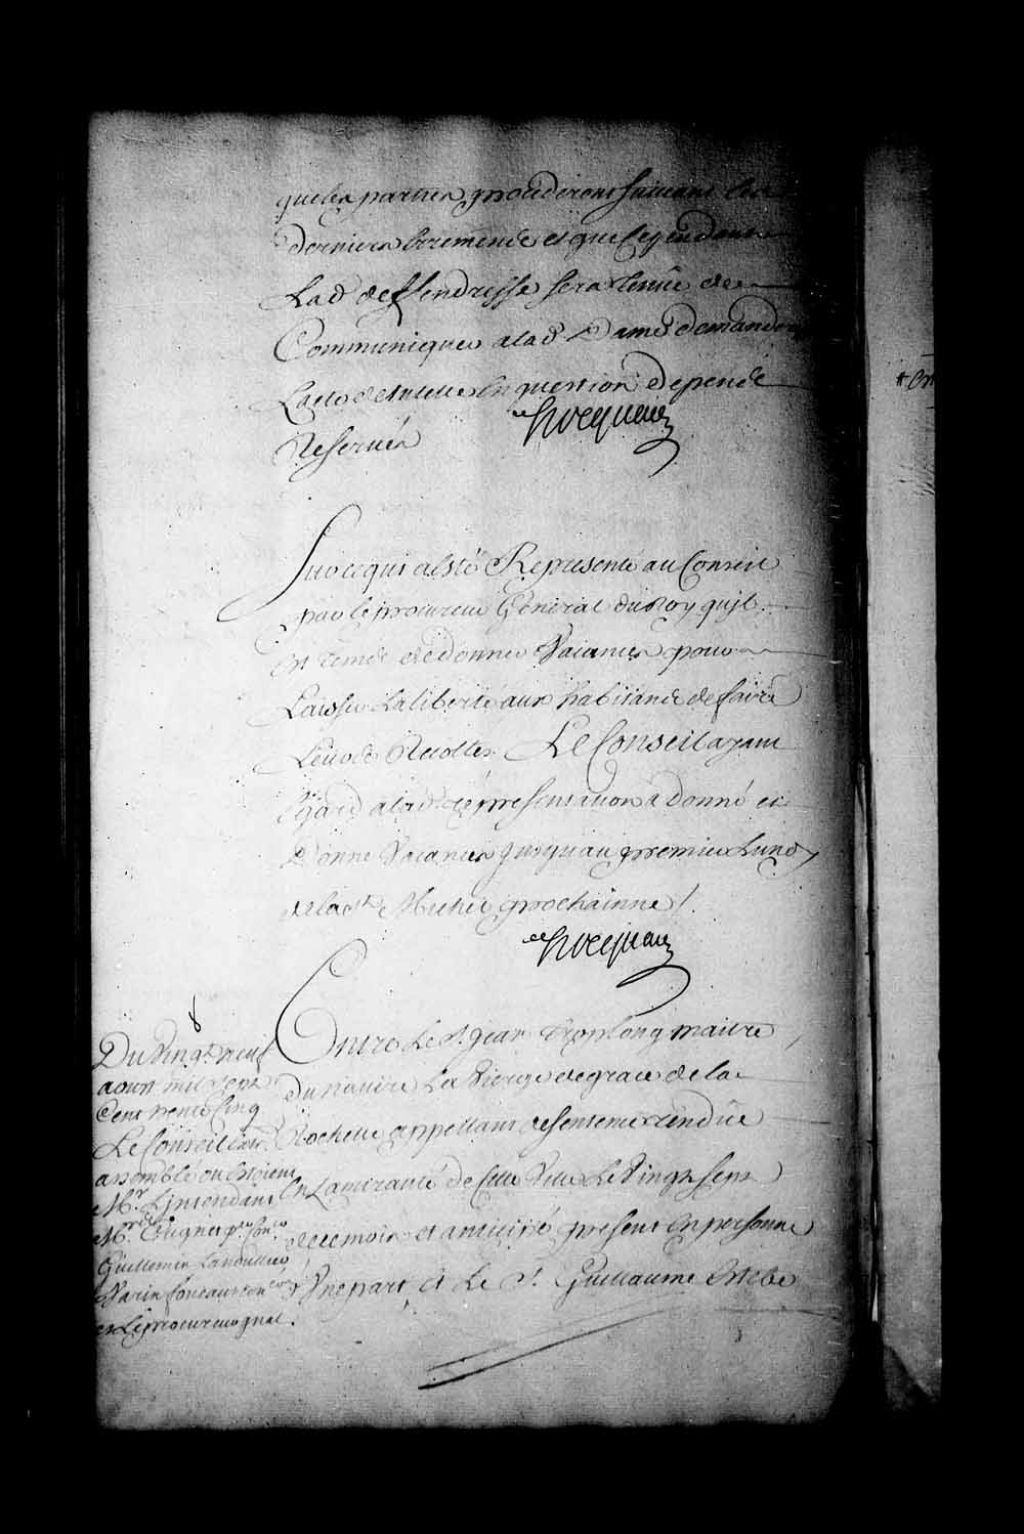 que les parties procederont suivant les
derniers Erremens et que Cependant
Lad deffendresse sera tenüe de
Communiquer alad Dame demand
Lacte de tutelle En question depens
Reservés
Hocquart
Sur ce qui a Esté Representé au Conseil
par le procureur General du Roy quil
Est temps de donner Vacances pour
Laisser La liberté aux habitans de faire
Leurs Recoltes Le Conseil ayant
Egard a lad representation a donné et
Donne Vacances jusquau premier Lundy
de la St Michel prochainne /.
Hocquart
8
Du Vingt neuf
aoust mil sept
Cent trente Cinq
Le Conseil
assemblé ou Estoient
Mr. LIntendant
Mrs Cugnet pr. Conser
Guillemin Lanoullier
Varin foucault Coners
et Le procureur gnal.
Entre Le Sr. jean Troplong maitre
Du navire La Vierge de grace de la
Rochelle appellant de sentence rendüe
En Lamirauté de Cette Ville Le Vingt sept
de ce mois et anticipé present En personne
dUne part, Et Le Sr. Guillaume Estebe
* Est